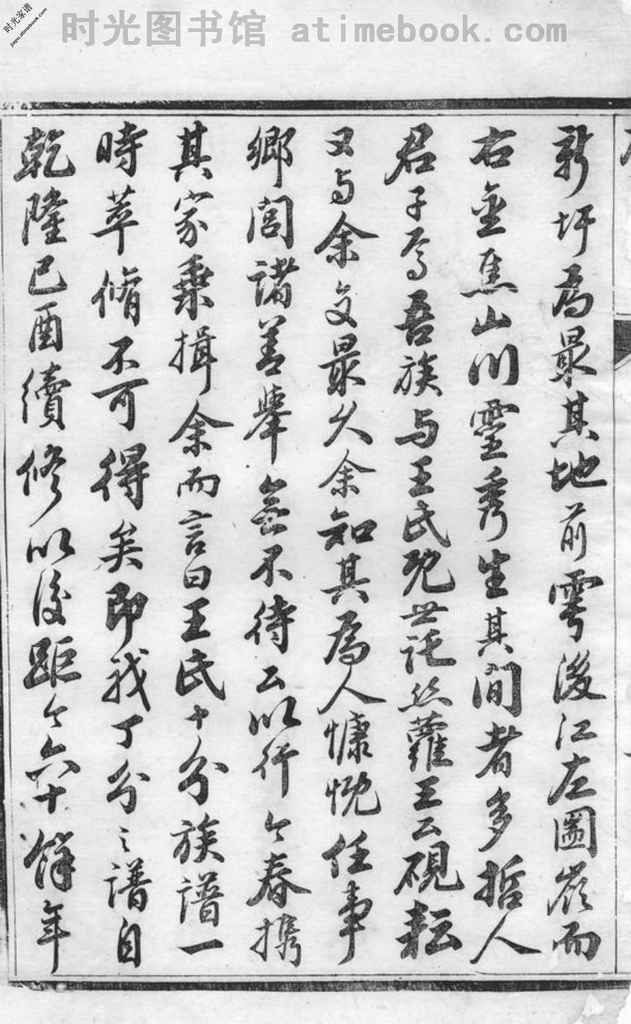 时光图书馆 atimebook.com
时光家谱
jiapu.atimebook.com
新圩為最其地前雩後江左圖嶺而
右金焦山川靈秀生其間者多哲人
君子焉吾族与王氏既世託絲蘿王公硯耘
又与余交最久余知其為人慷慨任事
鄉閭諸善舉無不待公以行今春攜
其家乘揖余而言曰王氏十分族譜一
時萃脩不可得矣即我丁分之譜自
乾隆己酉續修以後距今六十餘年